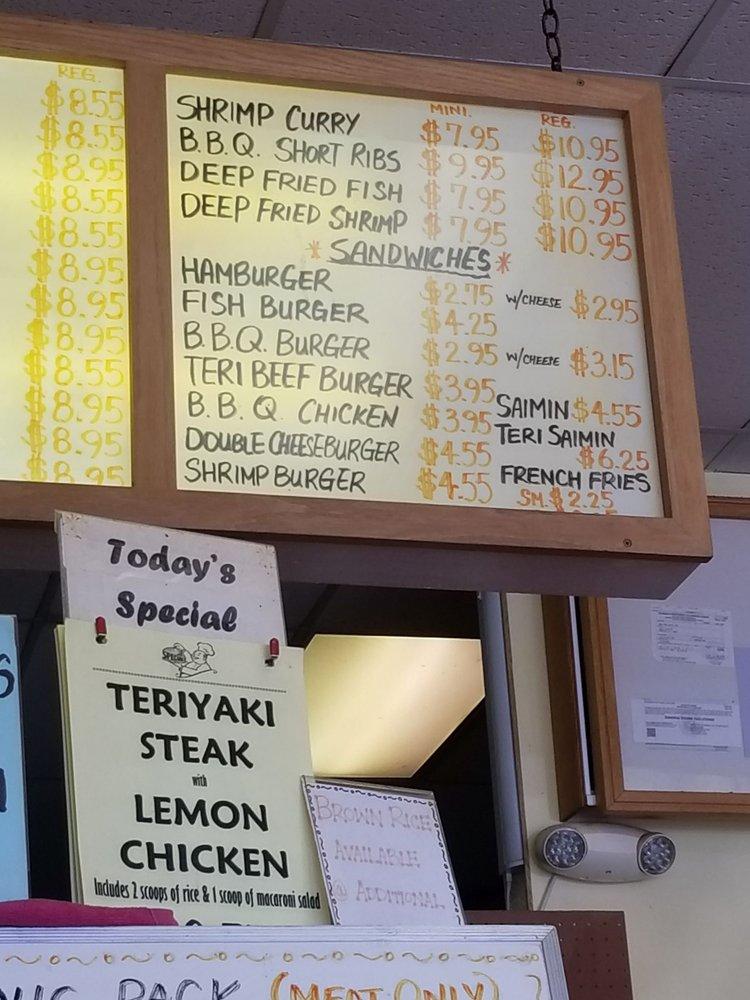 REG.
$8.55
$8.55
$8.95
$8.55
$8.55
$8.95
$8.95
$8.95
$8.55
$8.95
$8.95
MINI. REG.
SHRIMP CURRY $7.95 $10.95
B.B.Q. SHORT RIBS $9.95 $12.95
DEEP FRIED FISH $7.95 $10.95
DEEP FRIED SHRIMP $7.95 $10.95
* SANDWICHES *
HAMBURGER $2.75 W/CHEESE $2.95
FISH BURGER $4.25
B.B.Q. BURGER $2.95 W/CHEESE $3.15
TERI BEEF BURGER $3.95
B.B.Q. CHICKEN $3.95
DOUBLE CHEESEBURGER $4.55
SHRIMP BURGER $4.55
SAIMIN $4.55
TERI SAIMIN
$6.25
FRENCH FRIES
SM. $2.25
Today's
Special
TERIYAKI
STEAK
with
LEMON
CHICKEN
Includes 2 scoops of rice & 1 scoop of macaroni salad
BROWN RICE
AVAILABLE
@ ADDITIONAL
PACK (MEAT ONLY)